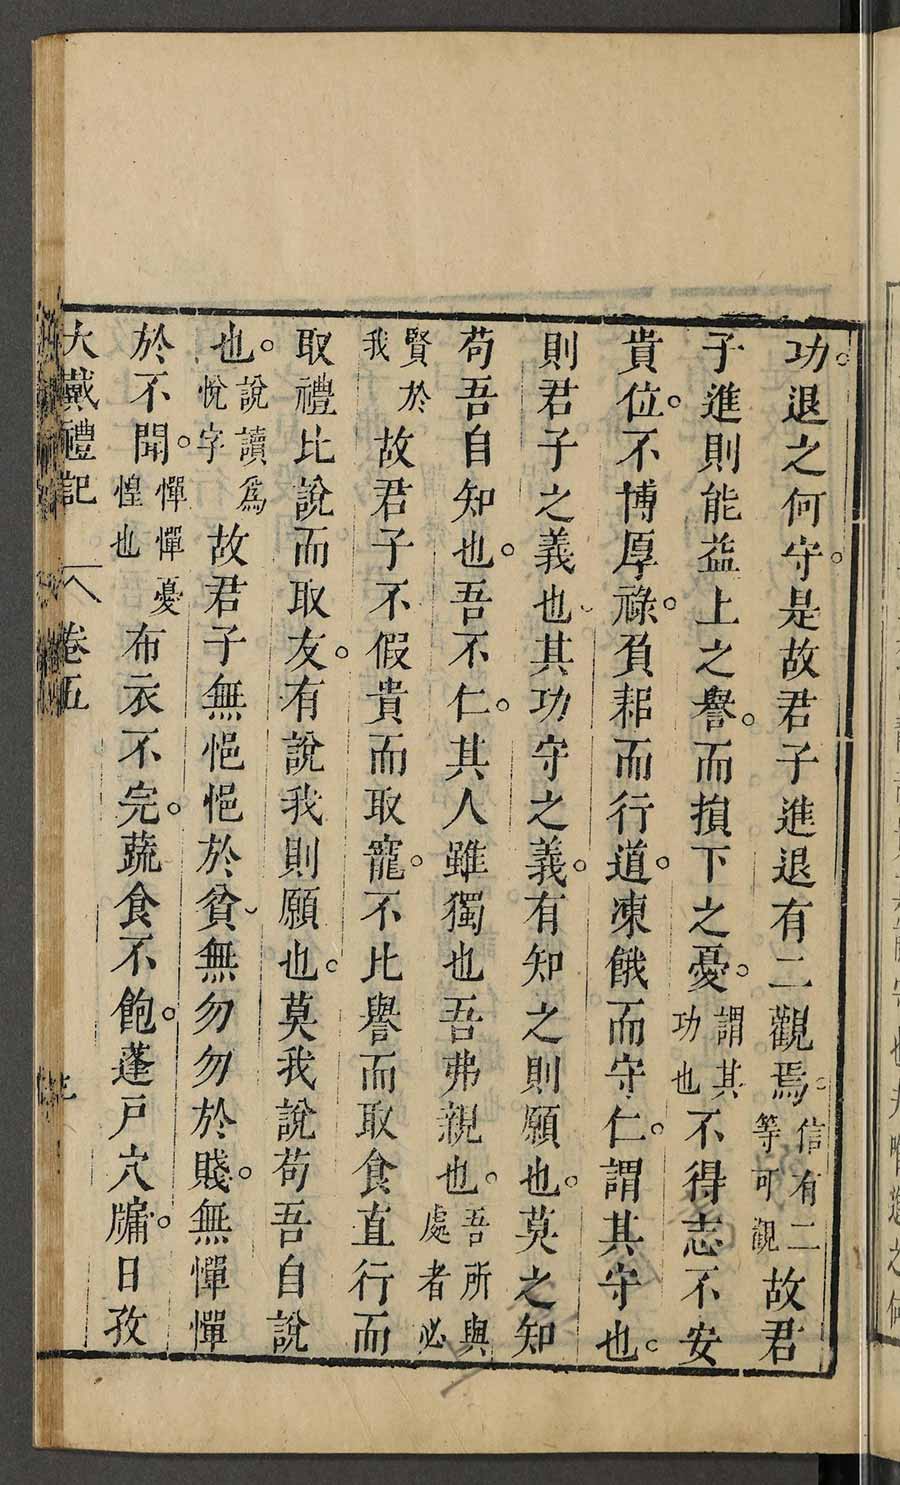 功退之何守是故君子進退有二觀焉信有二等可觀故君
子進則能益上之譽而損下之憂謂其功也不得志不安
貴位不博厚祿負耜而行道凍餓而守仁謂其守也
則君子之義也其功守之義有知之則願也莫之知
苟吾自知也吾不仁其人雖獨也吾弗親也吾所與處者必
賢於我故君子不假貴而取寵不比譽而取食直行而
取禮比說而取友有說我則願也莫我說苟吾自說
也說讀爲悅字故君子無悒悒於貧無勿勿於賤無憚憚
於不聞憚憚憂惶也布衣不完蔬食不飽蓬戶穴牖日孜
大戴禮記 卷五